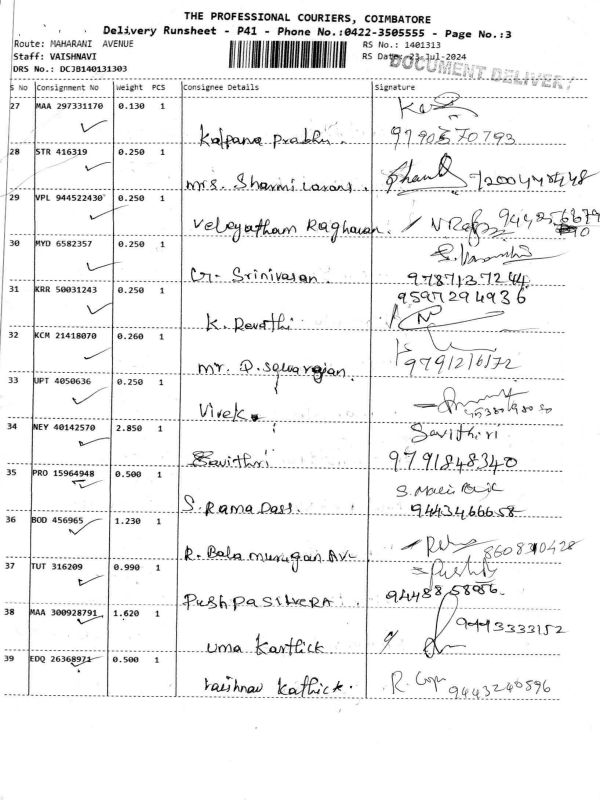 THE PROFESSIONAL COURIERS, COIMBATORE
Delivery Runsheet - P41 - Phone No.:0422-3505555 - Page No.:3
Route: MAHARANI AVENUE RS No.: 1401313
Staff: VAISHNAVI RS Date: 23-Jul-2024
DRS No.: DCJB140131303
DOCUMENT DELIVERY
S No Consignment No Weight PCS Consignee Details Signature
27 MAA 297331170 0.130 1
Kalpana Prabhu. 9790570793
28 STR 416319 0.250 1
Mrs. Sharmi 7200448448
29 VPL 944522430 0.250 1
Velayatham Raghavan.
30 MYD 6582357 0.250 1
G. Srinivasan. 9787137244
31 KRR 50031243 0.250 1 9597294936
K. Revathi
32 KCM 21418070 0.260 1
Mr. D. 9791216172
33 UPT 4050636 0.250 1
Vivek.
34 NEY 40142570 2.850 1 Savithiri
Savithri 9791848340
35 PRO 15964948 0.500 1
S. Rama Dass. 9443466658
36 BOD 456965 1.230 1
R. Bala Murugan AV. 8608310428
37 TUT 316209 0.990 1
Pushpa
38 MAA 300928791 1.620 1 9443333152
Uma Karthick
39 EDQ 26368971 0.500 1
Vaishnav Kathick. 9443240596